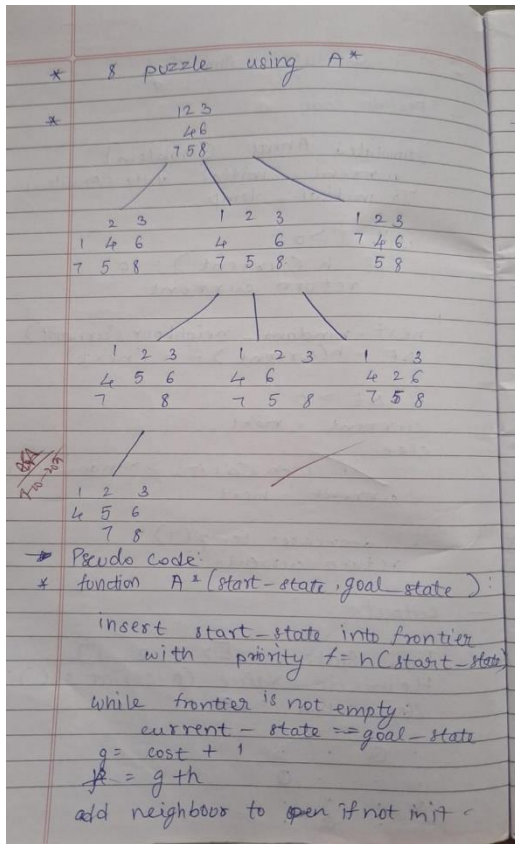 * 8 puzzle using A*
*
1 2 3
4 6
7 5 8
2 3 1 2 3 1 2 3
1 4 6 4 6 7 4 6
7 5 8 7 5 8 5 8
1 2 3 1 2 3 1 3
4 5 6 4 6 4 2 6
7 8 7 5 8 7 5 8
1 2 3
4 5 6
7 8
Pseudo code:
* function A* (start-state, goal_state):
insert start-state into frontier
with priority f = h(start-state)
while frontier is not empty:
current-state == goal-state
g = cost + 1
= g+h
add neighbour to open if not in it.